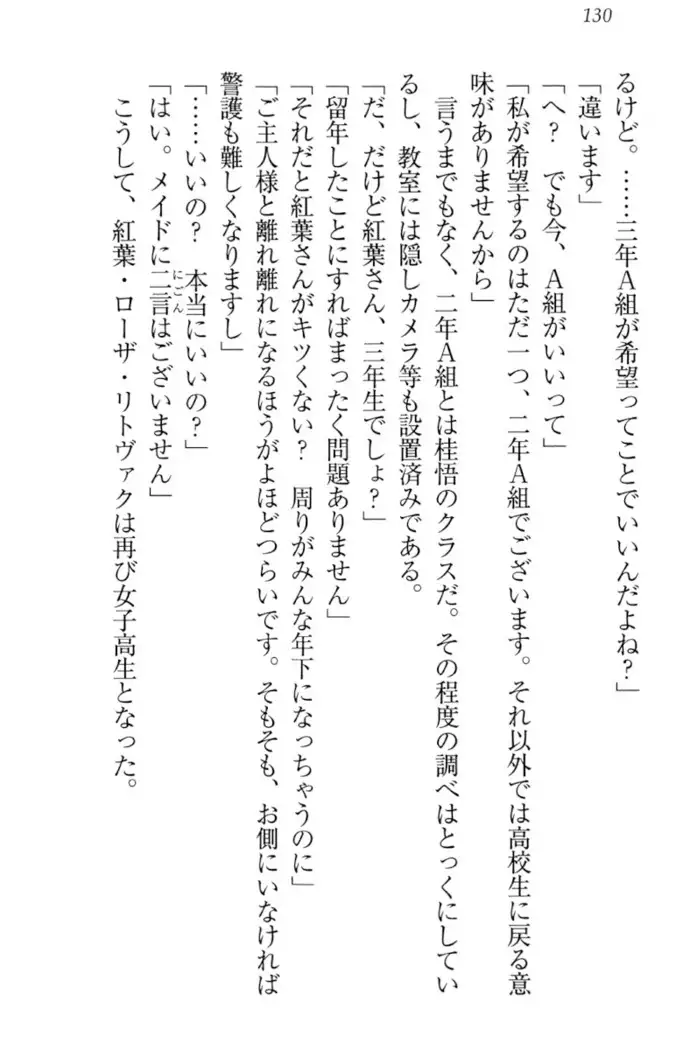 130
るけど。……三年A組が希望ってことでいいんだよね？」
「違います」
「へ？　でも今、A組がいいって」
「私が希望するのはただ一つ、二年A組でございます。それ以外では高校生に戻る意
味がありませんから」
　言うまでもなく、二年A組とは桂悟のクラスだ。その程度の調べはとっくにしてい
るし、教室には隠しカメラ等も設置済みである。
「だ、だけど紅葉さん、三年生でしょ？」
「留年したことにすればまったく問題ありません」
「それだと紅葉さんがキツくない？　周りがみんな年下になっちゃうのに」
「ご主人様と離れ離れになるほうがよほどつらいです。そもそも、お側にいなければ
警護も難しくなりますし」
「……いいの？　本当にいいの？」
「はい。メイドに二言はございません」
にごん
　こうして、紅葉・ローザ・リトヴァクは再び女子高生となった。